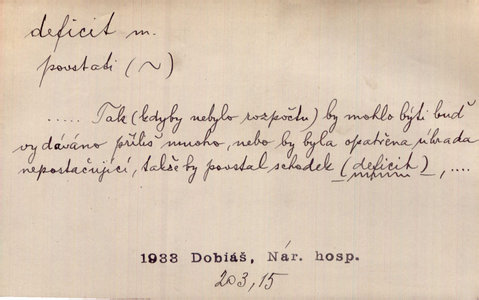 deficit m.
povstati (~)
..... Tak (kdyby nebylo rozpočtu) by mohlo býti buď
vydáváno příliš mnoho, nebo by byla opatřena úhrada
nepostačující, takže by povstal schodek (deficit), ....
1933 Dobiáš, Nár. hosp.
203,15